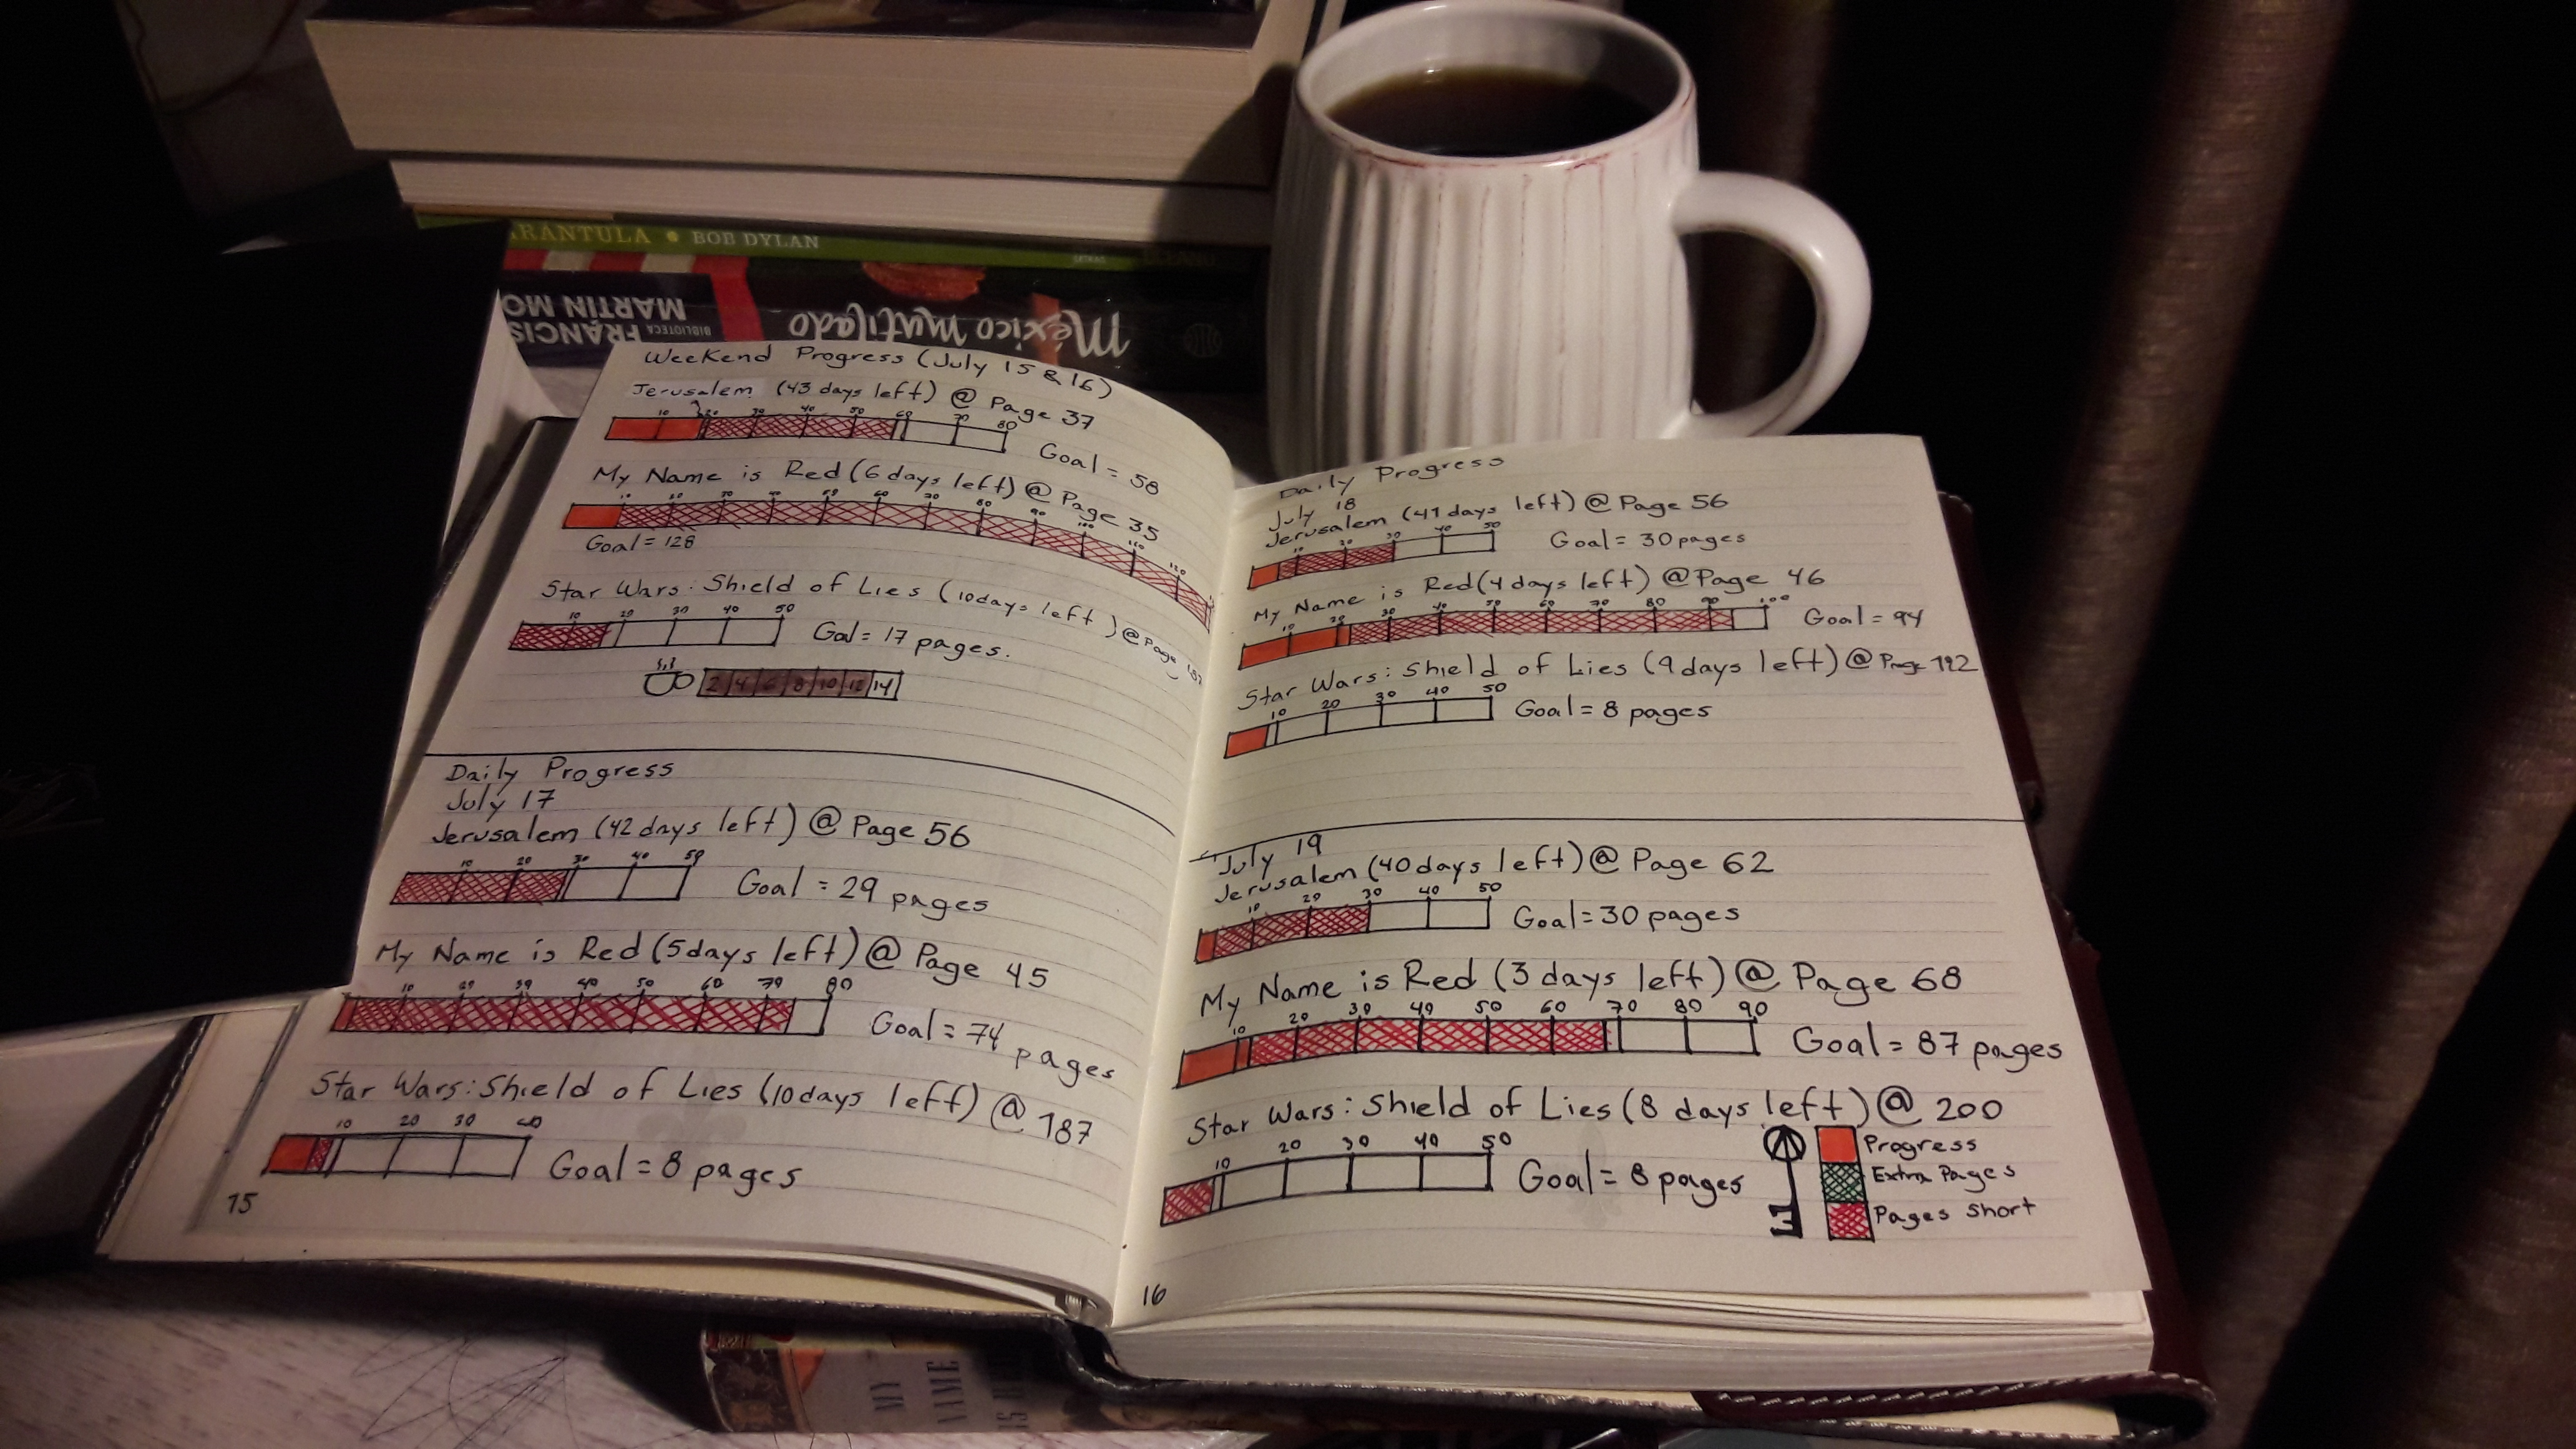 ARÁNTULA • BOB DYLAN
México mutilado
BIBLIOTECA
FRANCIS
MARTÍN MO
Weekend Progress (July 15 & 16)
Jerusalem (43 days left) @ Page 37
10 20 30 40 50 60 70 80
Goal = 58
My Name is Red (6 days left) @ Page 35
10 20 30 40 50 60 70 80 90 100 110 120
Goal = 128
Star Wars: Shield of Lies (10days left) @ Page
10 20 30 40 50
Goal = 17 pages.
2 4 6 8 10 12 14
Daily Progress
July 17
Jerusalem (42 days left) @ Page 56
10 20 30 40 50
Goal = 29 pages
My Name is Red (5days left) @ Page 45
10 20 30 40 50 60 70 80
Goal = 74 pages
Star Wars: Shield of Lies (10days left) @ 187
10 20 30 40
Goal = 8 pages
15
Daily Progress
July 18
Jerusalem (41 days left) @ Page 56
10 20 30 40 50
Goal = 30 pages
My Name is Red (4 days left) @ Page 46
10 20 30 40 50 60 70 80 90 100
Goal = 94
Star Wars: Shield of Lies (9 days left) @ Page 192
10 20 30 40 50
Goal = 8 pages
July 19
Jerusalem (40 days left) @ Page 62
10 20 30 40 50
Goal = 30 pages
My Name is Red (3 days left) @ Page 68
10 20 30 40 50 60 70 80 90
Goal = 87 pages
Star Wars: Shield of Lies (8 days left) @ 200
10 20 30 40 50
Goal = 8 pages
Progress
Extra Pages
Pages Short
16
MY
NAME
IS